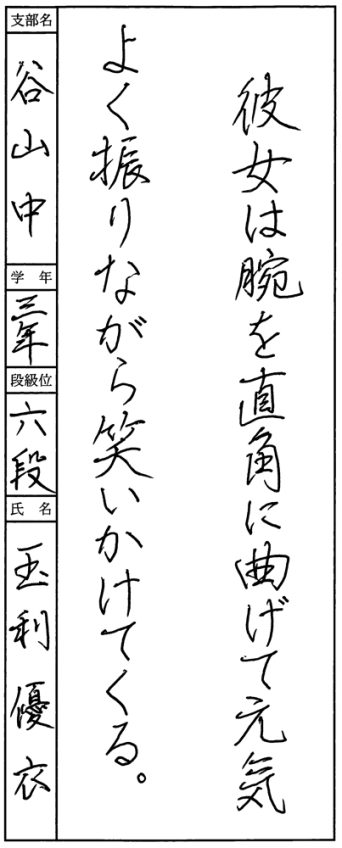 彼女は腕を直角に曲げて元気
よく振りながら笑いかけてくる。
支部名
谷山中
学年
三年
段級位
六段
氏名
玉利優衣